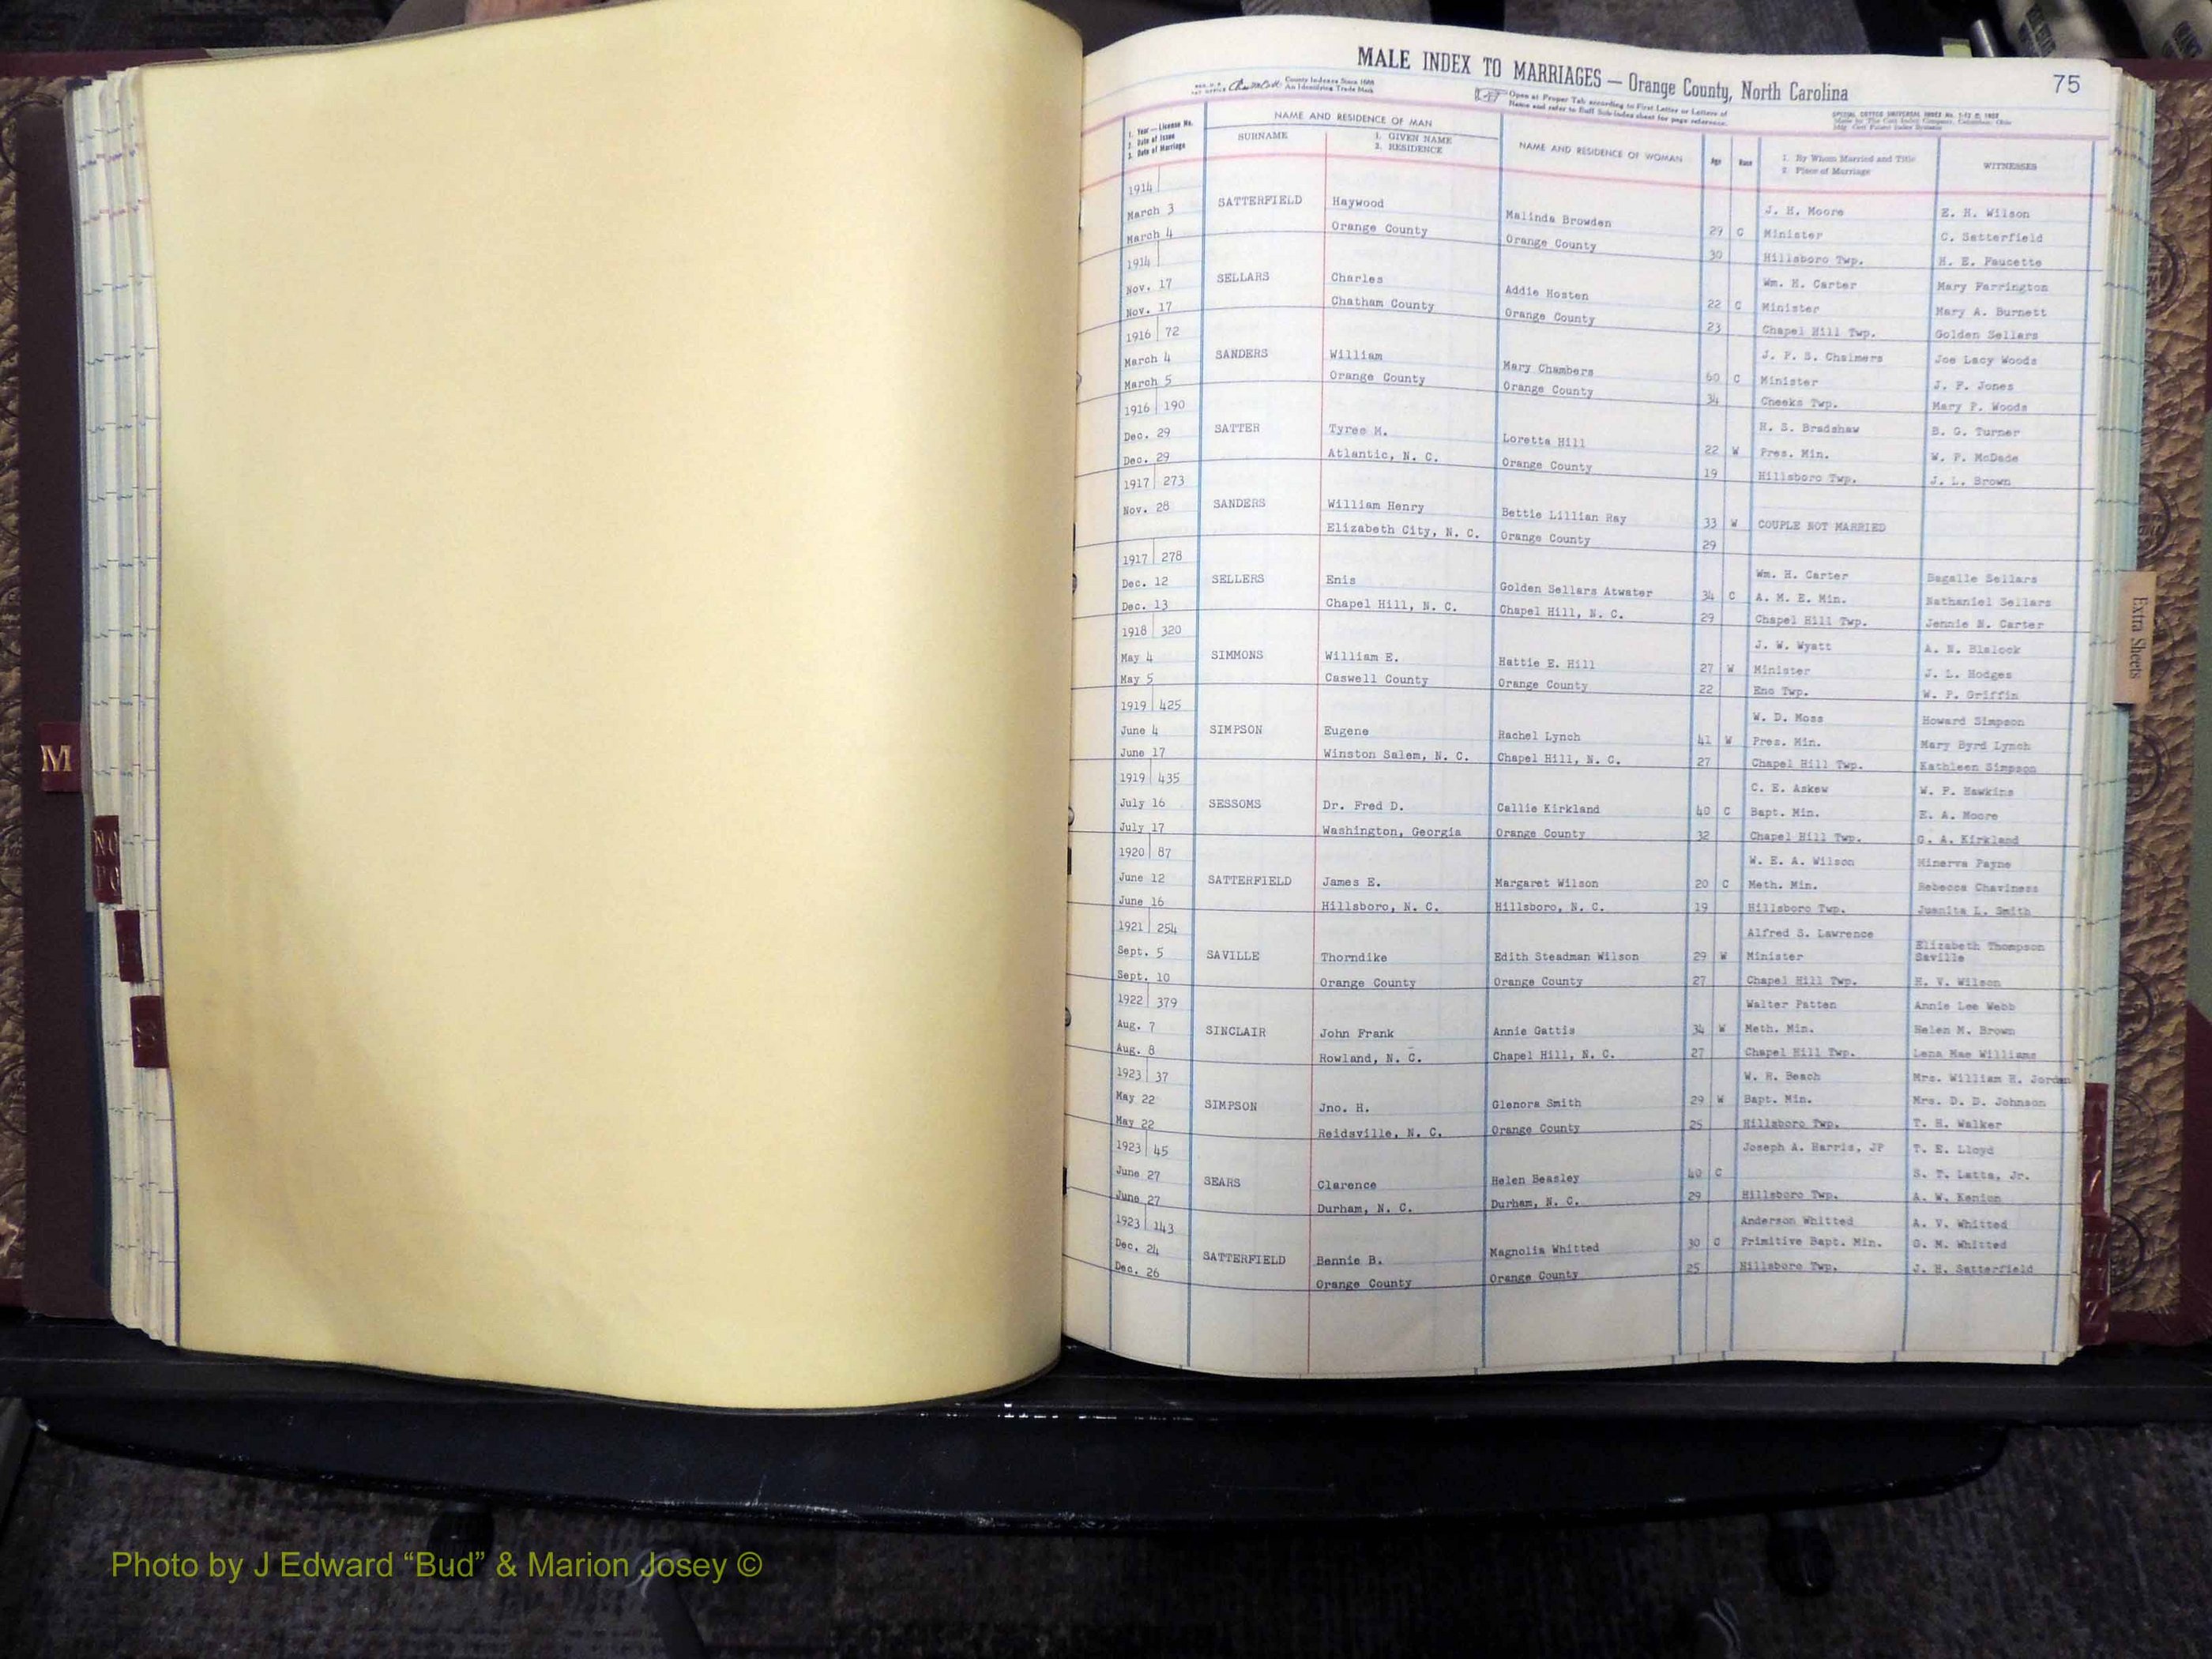 MALE INDEX TO MARRIAGES — Orange County, North Carolina
75
County Indexes Since 1888
An Identifying Trade Mark
Open at Proper Tab according to First Letter or Letters of
Name and refer to Buff Sub-Index sheet for page reference.
1. Year — License No.
2. Date of Issue
3. Date of Marriage
NAME AND RESIDENCE OF MAN
SURNAME
1. GIVEN NAME
2. RESIDENCE
NAME AND RESIDENCE OF WOMAN
Age
Race
1. By Whom Married and Title
2. Place of Marriage
WITNESSES
1914
March 3 SATTERFIELD Haywood Malinda Browden J. H. Moore E. H. Wilson
March 4 Orange County Orange County 29 C Minister C. Satterfield
30 Hillsboro Twp. H. E. Faucette
1914
Nov. 17 SELLARS Charles Addie Hosten Wm. H. Carter Mary Farrington
Nov. 17 Chatham County Orange County 22 C Minister Mary A. Burnett
23 Chapel Hill Twp. Golden Sellars
1916 72
March 4 SANDERS William Mary Chambers J. P. S. Chalmers Joe Lacy Woods
March 5 Orange County Orange County 60 C Minister J. F. Jones
34 Cheeks Twp. Mary P. Woods
1916 190
Dec. 29 SATTER Tyree M. Loretta Hill H. S. Bradshaw B. G. Turner
Dec. 29 Atlantic, N. C. Orange County 22 W Pres. Min. W. P. McDade
19 Hillsboro Twp. J. L. Brown
1917 273
Nov. 28 SANDERS William Henry Bettie Lillian Ray 33 W COUPLE NOT MARRIED
Elizabeth City, N. C. Orange County 29
1917 278
Dec. 12 SELLERS Enis Golden Sellars Atwater Wm. H. Carter Bagalle Sellars
Dec. 13 Chapel Hill, N. C. Chapel Hill, N. C. 34 C A. M. E. Min. Nathaniel Sellars
29 Chapel Hill Twp. Jennie N. Carter
1918 320
May 4 SIMMONS William E. Hattie E. Hill J. W. Wyatt A. N. Blalock
May 5 Caswell County Orange County 27 W Minister J. L. Hodges
22 Eno Twp. W. P. Griffin
1919 425
June 4 SIMPSON Eugene Rachel Lynch W. D. Moss Howard Simpson
June 17 Winston Salem, N. C. Chapel Hill, N. C. 41 W Pres. Min. Mary Byrd Lynch
27 Chapel Hill Twp. Kathleen Simpson
1919 435
July 16 SESSOMS Dr. Fred D. Callie Kirkland C. E. Askew W. P. Hawkins
July 17 Washington, Georgia Orange County 40 C Bapt. Min. E. A. Moore
32 Chapel Hill Twp. G. A. Kirkland
1920 87
June 12 SATTERFIELD James E. Margaret Wilson W. E. A. Wilson Minerva Payne
June 16 Hillsboro, N. C. Hillsboro, N. C. 20 C Meth. Min. Rebecca Chaviness
19 Hillsboro Twp. Juanita L. Smith
1921 254
Sept. 5 SAVILLE Thorndike Edith Steadman Wilson Alfred S. Lawrence Elizabeth Thompson Saville
Sept. 10 Orange County Orange County 29 W Minister
27 Chapel Hill Twp. H. V. Wilson
1922 379
Aug. 7 SINCLAIR John Frank Annie Gattis Walter Patten Annie Lee Webb
Aug. 8 Rowland, N. C. Chapel Hill, N. C. 34 W Meth. Min. Helen M. Brown
27 Chapel Hill Twp. Lena Mae Williams
1923 37
May 22 SIMPSON Jno. H. Glenora Smith W. R. Beach Mrs. William H. Jordan
May 22 Reidsville, N. C. Orange County 29 W Bapt. Min. Mrs. D. D. Johnson
25 Hillsboro Twp. T. H. Walker
1923 45
June 27 SEARS Clarence Helen Beasley Joseph A. Harris, JP T. E. Lloyd
June 27 Durham, N. C. Durham, N. C. 40 C S. T. Latta, Jr.
29 Hillsboro Twp. A. W. Kenion
1923 143
Dec. 24 SATTERFIELD Bennie B. Magnolia Whitted Anderson Whitted A. V. Whitted
Dec. 26 Orange County Orange County 30 C Primitive Bapt. Min. G. M. Whitted
25 Hillsboro Twp. J. H. Satterfield
Extra Sheets
M
Photo by J Edward “Bud” & Marion Josey ©